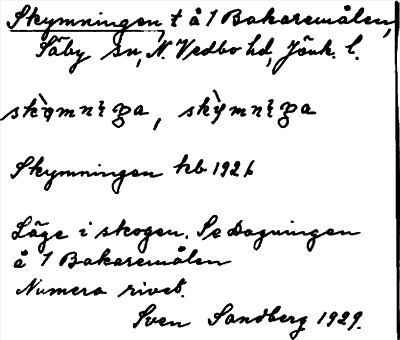 Skymningen, t å 1 Bakaremålen,
Säby sn, N. Vedbo hd, Jönk. l.
Skymningen kb 1926
Läge i skogen. Se Dagningen
å 1 Bakaremålen
Numera rivet.
Sven Sandberg 1929.